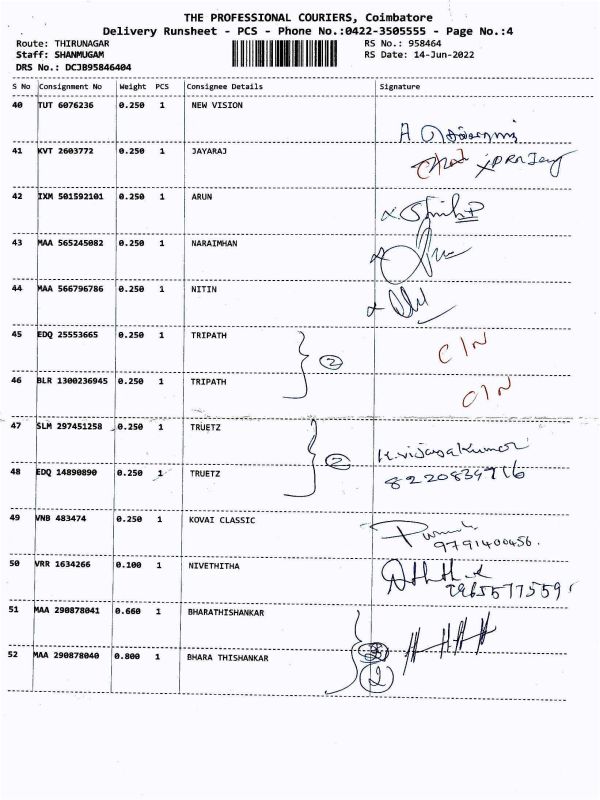 THE PROFESSIONAL COURIERS, Coimbatore
Delivery Runsheet - PCS - Phone No.:0422-3505555 - Page No.:4
Route: THIRUNAGAR RS No.: 958464
Staff: SHANMUGAM RS Date: 14-Jun-2022
DRS No.: DCJB95846404
S No Consignment No Weight PCS Consignee Details Signature
40 TUT 6076236 0.250 1 NEW VISION
41 KVT 2603772 0.250 1 JAYARAJ
42 IXM 501592101 0.250 1 ARUN
43 MAA 565245082 0.250 1 NARAIMHAN
44 MAA 566796786 0.250 1 NITIN
45 EDQ 25553665 0.250 1 TRIPATH
2 C/N
46 BLR 1300236945 0.250 1 TRIPATH
C/N
47 SLM 297451258 0.250 1 TRUETZ
2 K.vijayakumar
48 EDQ 14890890 0.250 1 TRUETZ
8220839716
49 VNB 483474 0.250 1 KOVAI CLASSIC
9791400456.
50 VRR 1634266 0.100 1 NIVETHITHA
51 MAA 290878041 0.660 1 BHARATHISHANKAR
52 MAA 290878040 0.800 1 BHARA THISHANKAR
2